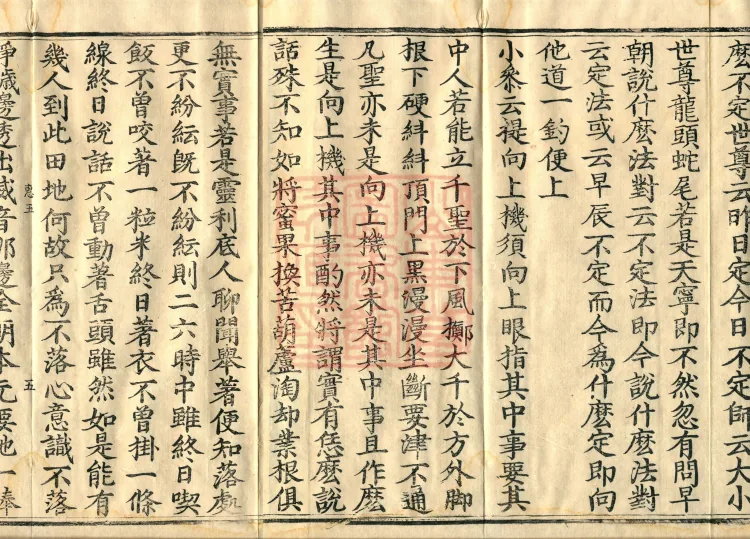 麼不定世尊云昨日定今日不定師云大小
世尊龍頭蛇尾若是天寧即不然忽有問早
朝說什麼法對云不定法即今說什麼法對
云定法或云早辰不定而今為什麼定即向
他道一釣便上
小叅云提向上機須向上眼指其中事要其
中人若能立千聖於下風擲大千於方外脚
根下硬紏紏頂門上黑漫漫坐斷要津不通
凡聖亦未是向上機亦未是其中事且作麼
生是向上機其中事酌然將謂實有恁麼說
話殊不知如將蜜果換苦葫蘆淘却業根俱
無實事若是靈利底人聊聞舉著便知落處
更不紛紜旣不紛紜則二六時中雖終日喫
飯不曾咬著一粒米終日著衣不曾掛一條
線終日說話不曾動著舌頭雖然如是能有
幾人到此田地何故只為不落心意識不落
五
邊透出威音那邊全明本元要他一棒